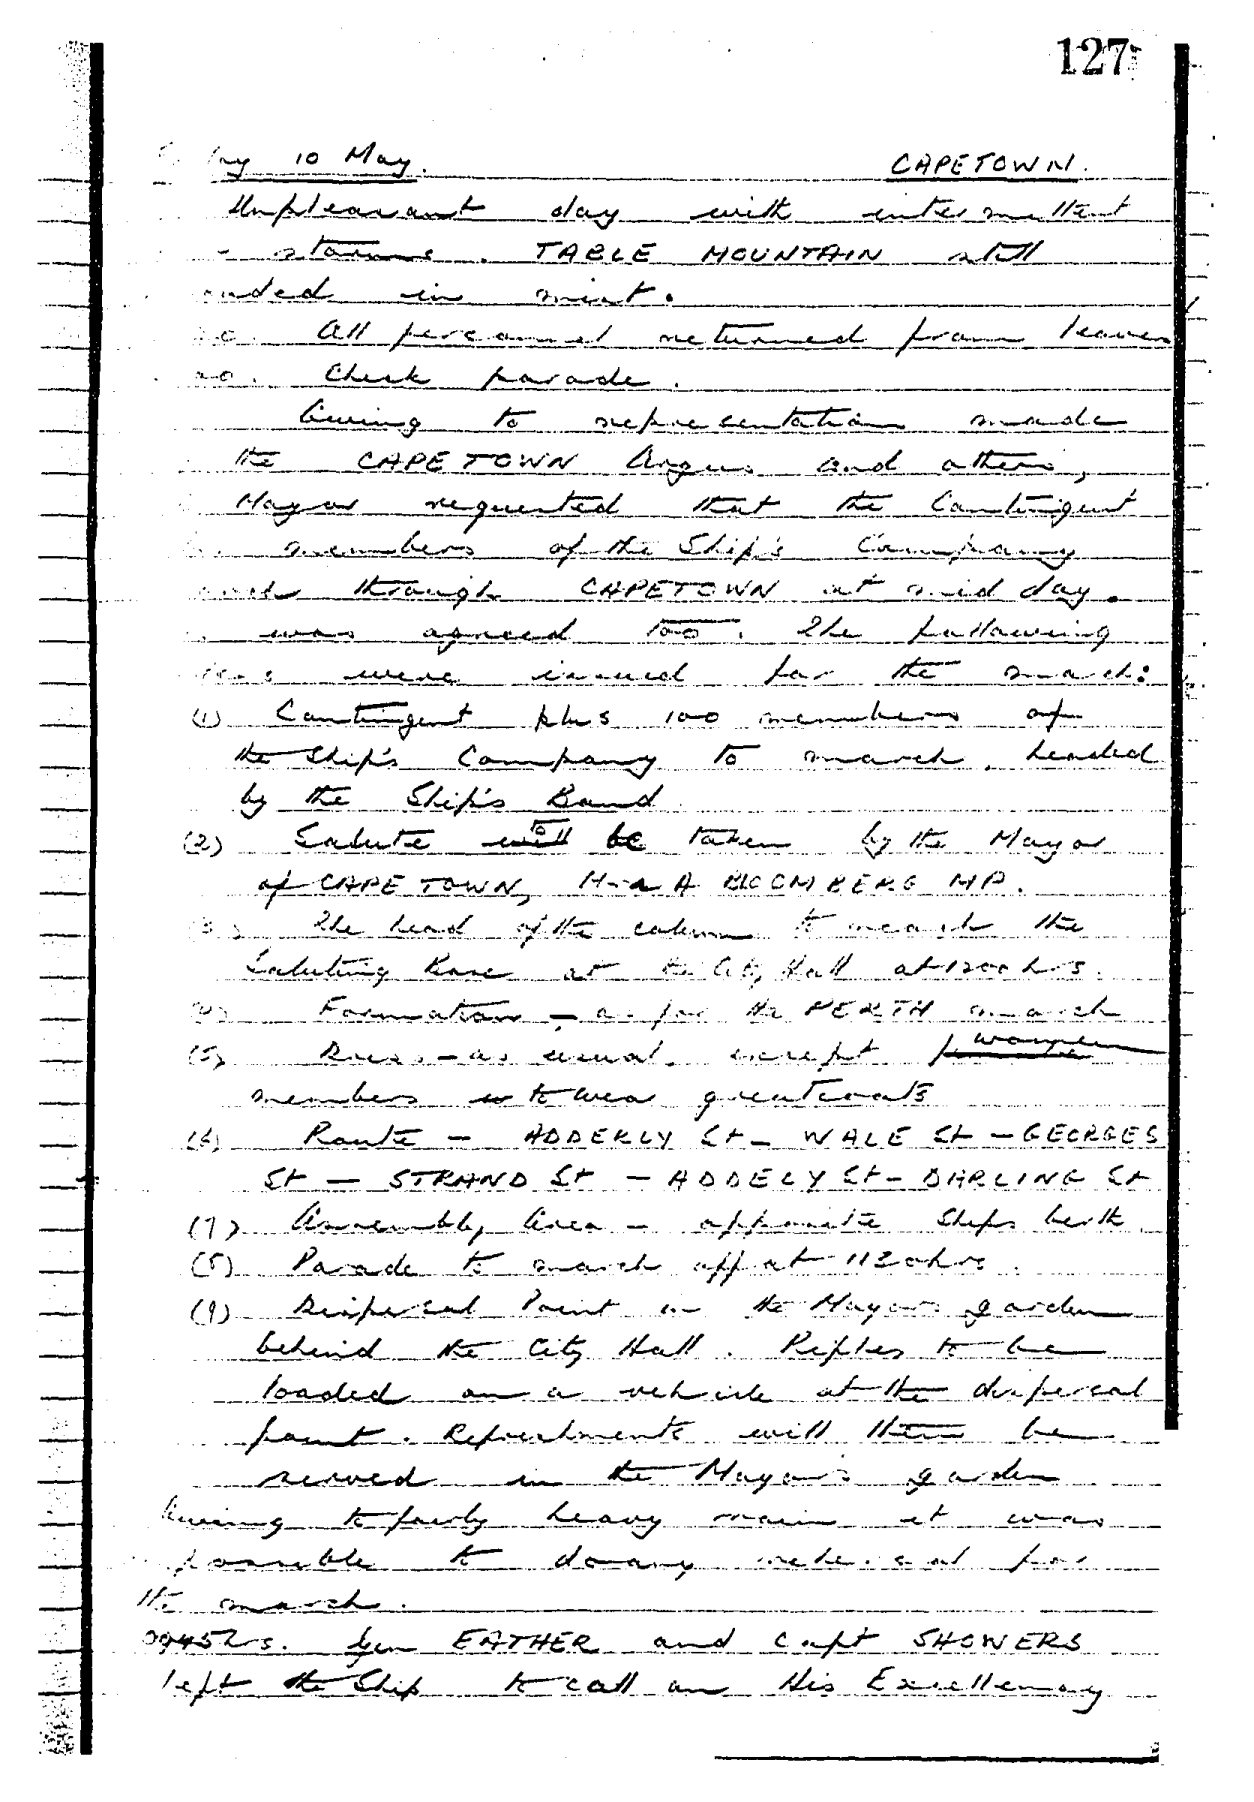 127
10 May. CAPETOWN.
Unpleasant day with intermittent
storms. TABLE MOUNTAIN still
in mist.
All personnel returned from leave
Check parade.
Owing to representation made
the CAPETOWN Argus and others,
Mayor requested that the Contingent
members of the Ship's Company
through CAPETOWN at mid day.
was agreed too. The following
were issued for the march:
(1) Contingent plus 100 members of
the Ship's Company to march, headed
by the Ship's Band
(2) Salute to taken by the Mayor
of CAPETOWN, A BLOOMBERG MP.
(3) The head of the column to reach the
Saluting Base at the City Hall at 1200 hrs.
(4) Formation - as for the PERTH march
(5) Dress - as usual except women
members to wear greatcoats
(6) Route - ADDERLY St - WALE St - GEORGES
St - STRAND St - ADDELY St - DARLING St
(7) Assembly Area - opposite Ships berth
(8) Parade to march off at 1130 hrs.
(9) Dispersal Point in the Mayors garden
behind the City Hall. Rifles to be
loaded on a vehicle at the dispersal
point. Refreshments will then be
served in the Mayor's garden
Owing to fairly heavy rain it was
possible to do any rehearsal for
the march.
0945 hrs. Gen EATHER and Capt SHOWERS
left the Ship to call on His Excellency